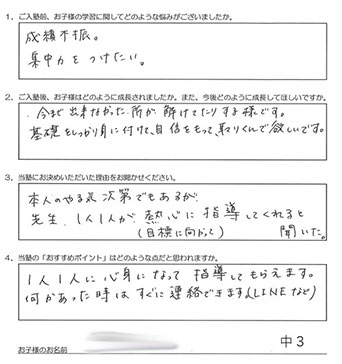 1. ご入塾前、お子様の学習に関してどのような悩みがございましたか。
成績不振。
集中力をつけたい。
2. ご入塾後、お子様はどのように成長されましたか。また、今後どのように成長してほしいですか。
今まで出来なかった所が解けてたりする様です。
基礎をしっかり身に付けて、自信をもって、取りくんで欲しいです。
3. 当塾にお決めいただいた理由をお聞かせください。
本人のやる気次第でもあるが、
先生、1人1人が、熱心に指導してくれると
(目標に向かって) 聞いた。
4. 当塾の「おすすめポイント」はどのような点だと思われますか。
1人1人に心身になって指導してもらえます。
何かあった時はすぐに連絡できます(LINEなど)
中3
お子様のお名前